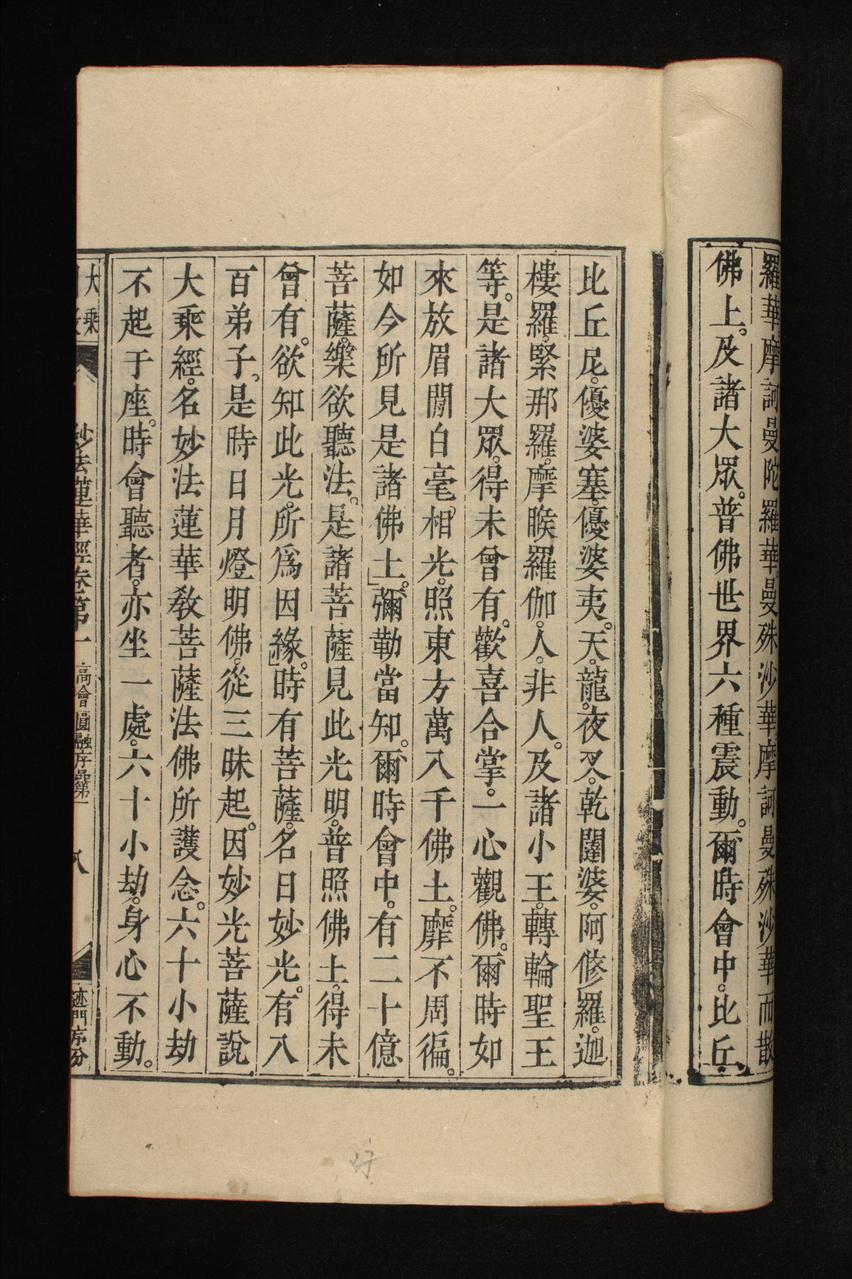 羅華摩訶曼陀羅華曼殊沙華摩訶曼殊沙華而散
佛上。及諸大眾。普佛世界六種震動。爾時會中。比丘
比丘尼。優婆塞。優婆夷。天。龍。夜叉。乾闥婆。阿修羅。迦
樓羅。緊那羅。摩睺羅伽。人。非人。及諸小王。轉輪聖王
等。是諸大眾。得未曾有。歡喜合掌。一心觀佛。爾時如
來放眉間白毫。相光。照東方萬八千佛土。靡不周徧。
如今所見是諸佛土。」彌勒當知。爾時會中。有二十億
菩薩。樂欲聽法。是諸菩薩見此光明。普照佛土。得未
曾有。欲知此光。所為因緣。」時有菩薩。名曰妙光。有八
百弟子。是時日月燈明佛。從三昧起。因妙光菩薩說
大乘經。名妙法蓮華教菩薩法佛所護念。六十小劫
不起于座。時會聽者。亦坐一處。六十小劫。身心不動。
大乘
妙法蓮華經卷第一
高會圓融序品第一
八
迹門序分